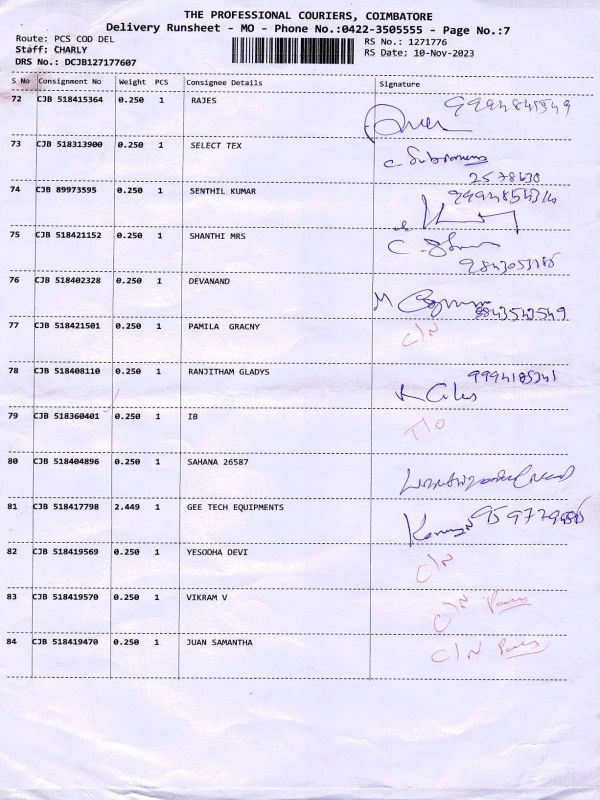 THE PROFESSIONAL COURIERS, COIMBATORE
Delivery Runsheet - MO - Phone No.:0422-3505555 - Page No.:7
Route: PCS COD DEL
RS No.: 1271776
Staff: CHARLY
RS Date: 10-Nov-2023
DRS No.: DCJB127177607
S No Consignment No Weight PCS Consignee Details Signature
72 CJB 518415364 0.250 1 RAJES
73 CJB 518313900 0.250 1 SELECT TEX
2578630
74 CJB 89973595 0.250 1 SENTHIL KUMAR
75 CJB 518421152 0.250 1 SHANTHI MRS
76 CJB 518402328 0.250 1 DEVANAND
77 CJB 518421501 0.250 1 PAMILA GRACNY C/N
78 CJB 518408110 0.250 1 RANJITHAM GLADYS
79 CJB 518360401 0.250 1 IB T/O
80 CJB 518404896 0.250 1 SAHANA 26587
81 CJB 518417798 2.449 1 GEE TECH EQUIPMENTS
82 CJB 518419569 0.250 1 YESODHA DEVI C/N
83 CJB 518419570 0.250 1 VIKRAM V C/N
84 CJB 518419470 0.250 1 JUAN SAMANTHA C/N